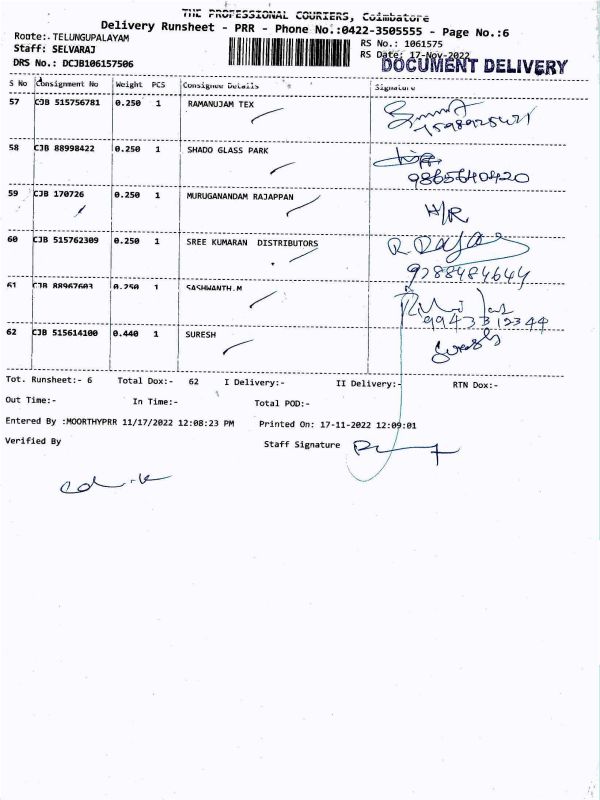 THE PROFESSIONAL COURIERS, Coimbatore
Delivery Runsheet - PRR - Phone No.:0422-3505555 - Page No.:6
Roote:- TELUNGUPALAYAM
RS No.: 1061575
Staff: SELVARAJ
RS Date: 17-Nov-2022
DRS No.: DCJB106157506
DOCUMENT DELIVERY
S No Consignment No Weight PCS Consignee Details Signature
57 CJB 515756781 0.250 1 RAMANUJAM TEX
58 CJB 88998422 0.250 1 SHADO GLASS PARK
9865640420
59 CJB 170726 0.250 1 MURUGANANDAM RAJAPPAN H/R
60 CJB 515762309 0.250 1 SREE KUMARAN DISTRIBUTORS
9288484644
61 CJB 88967603 0.250 1 SASHWANTH.M
9943312344
62 CJB 515614100 0.440 1 SURESH Suresh
Tot. Runsheet:- 6 Total Dox:- 62 I Delivery:- II Delivery:- RTN Dox:-
Out Time:- In Time:- Total POD:-
Entered By :MOORTHYPRR 11/17/2022 12:08:23 PM Printed On: 17-11-2022 12:09:01
Verified By Staff Signature